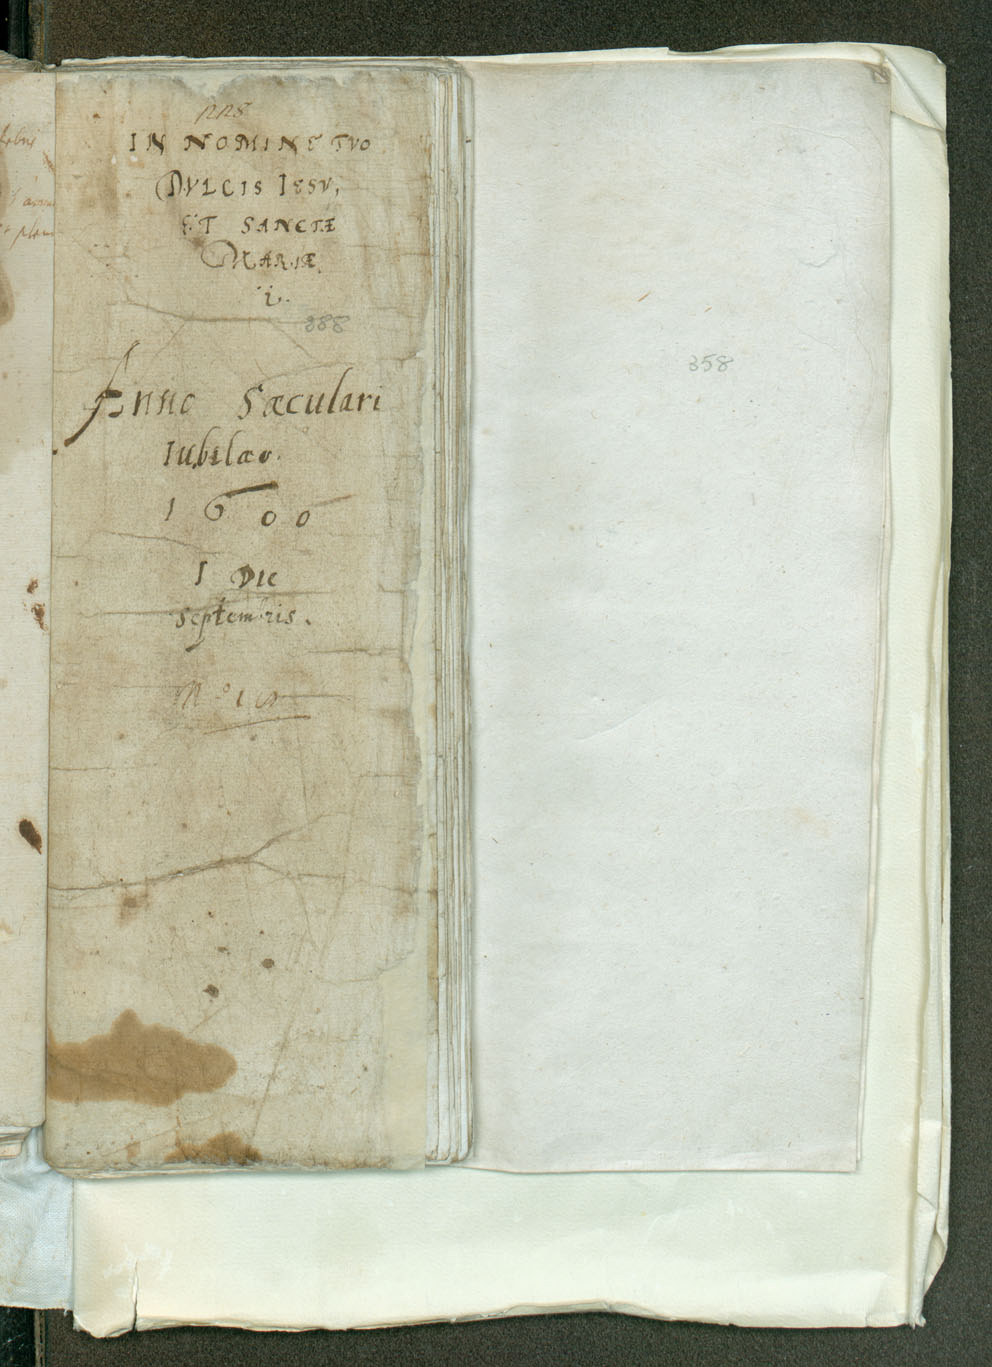 228
IN NOMINE TVO
DVLCIS IESV,
ET SANCTÆ
MARIÆ.
i.
388
Anno Sæculari
Iubilæo.
1600
I DIE
Septembris.
N.º
358